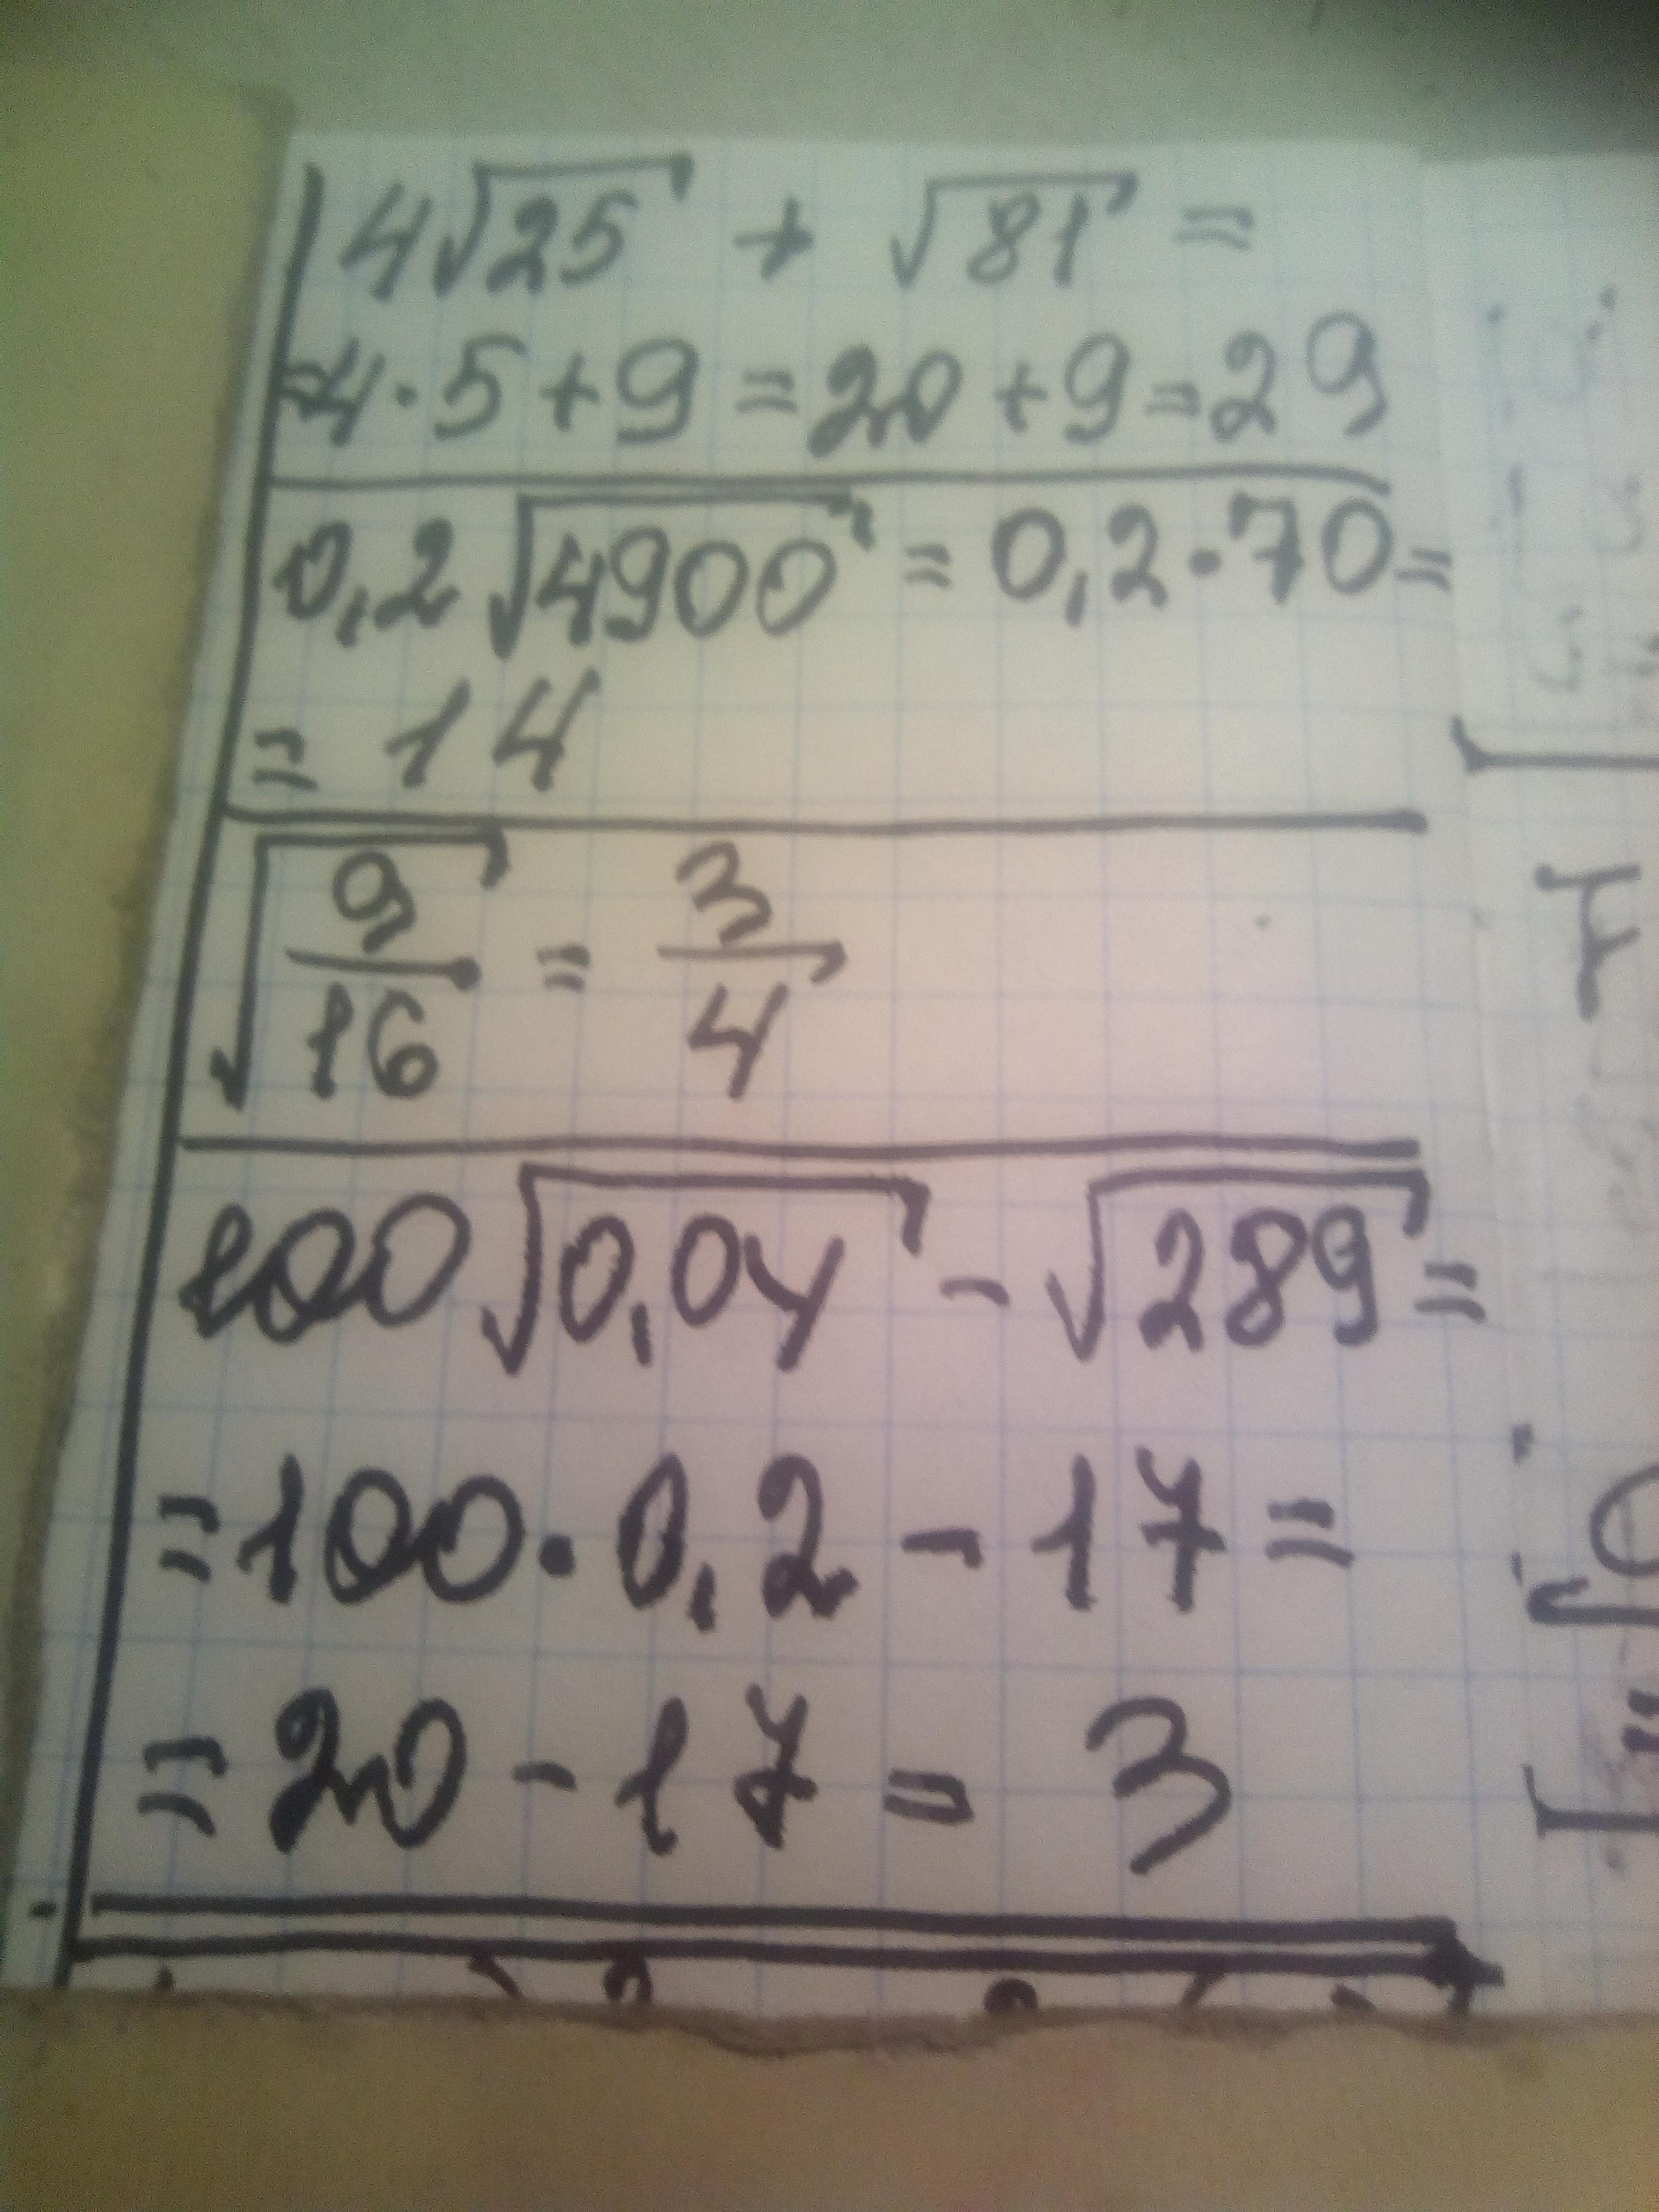 4√25 + √81 =
=4·5+9=20+9=29
0,2√4900 = 0,2·70=
= 14
√(9/16) = 3/4
100√0,04 - √289 =
=100·0,2-17=
=20-17= 3